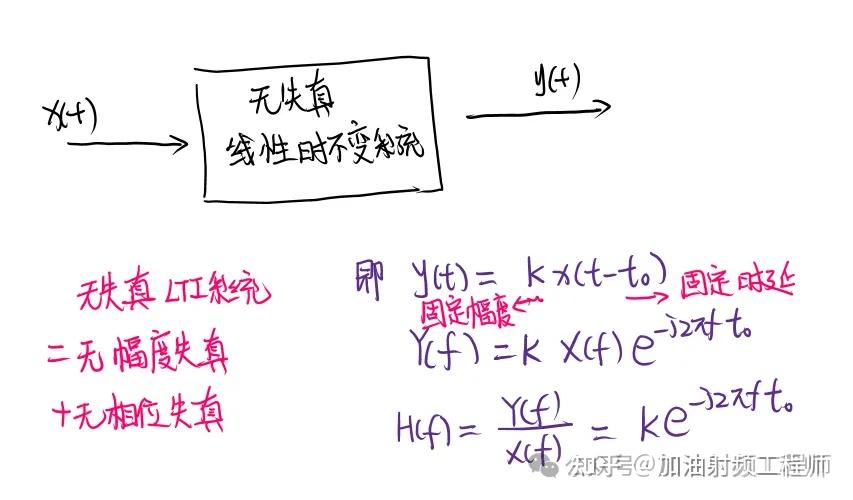 x(t)
无失真
线性时不变系统
y(t)
无失真LTI系统
=无幅度失真
+无相位失真
即 y(t) = k x(t-t₀) 固定时延
固定幅度
Y(f) = k X(f) e^{-j2πf t₀}
H(f) = Y(f)/X(f) = k e^{-j2πf t₀}
知乎 @加油射频工程师
公众号